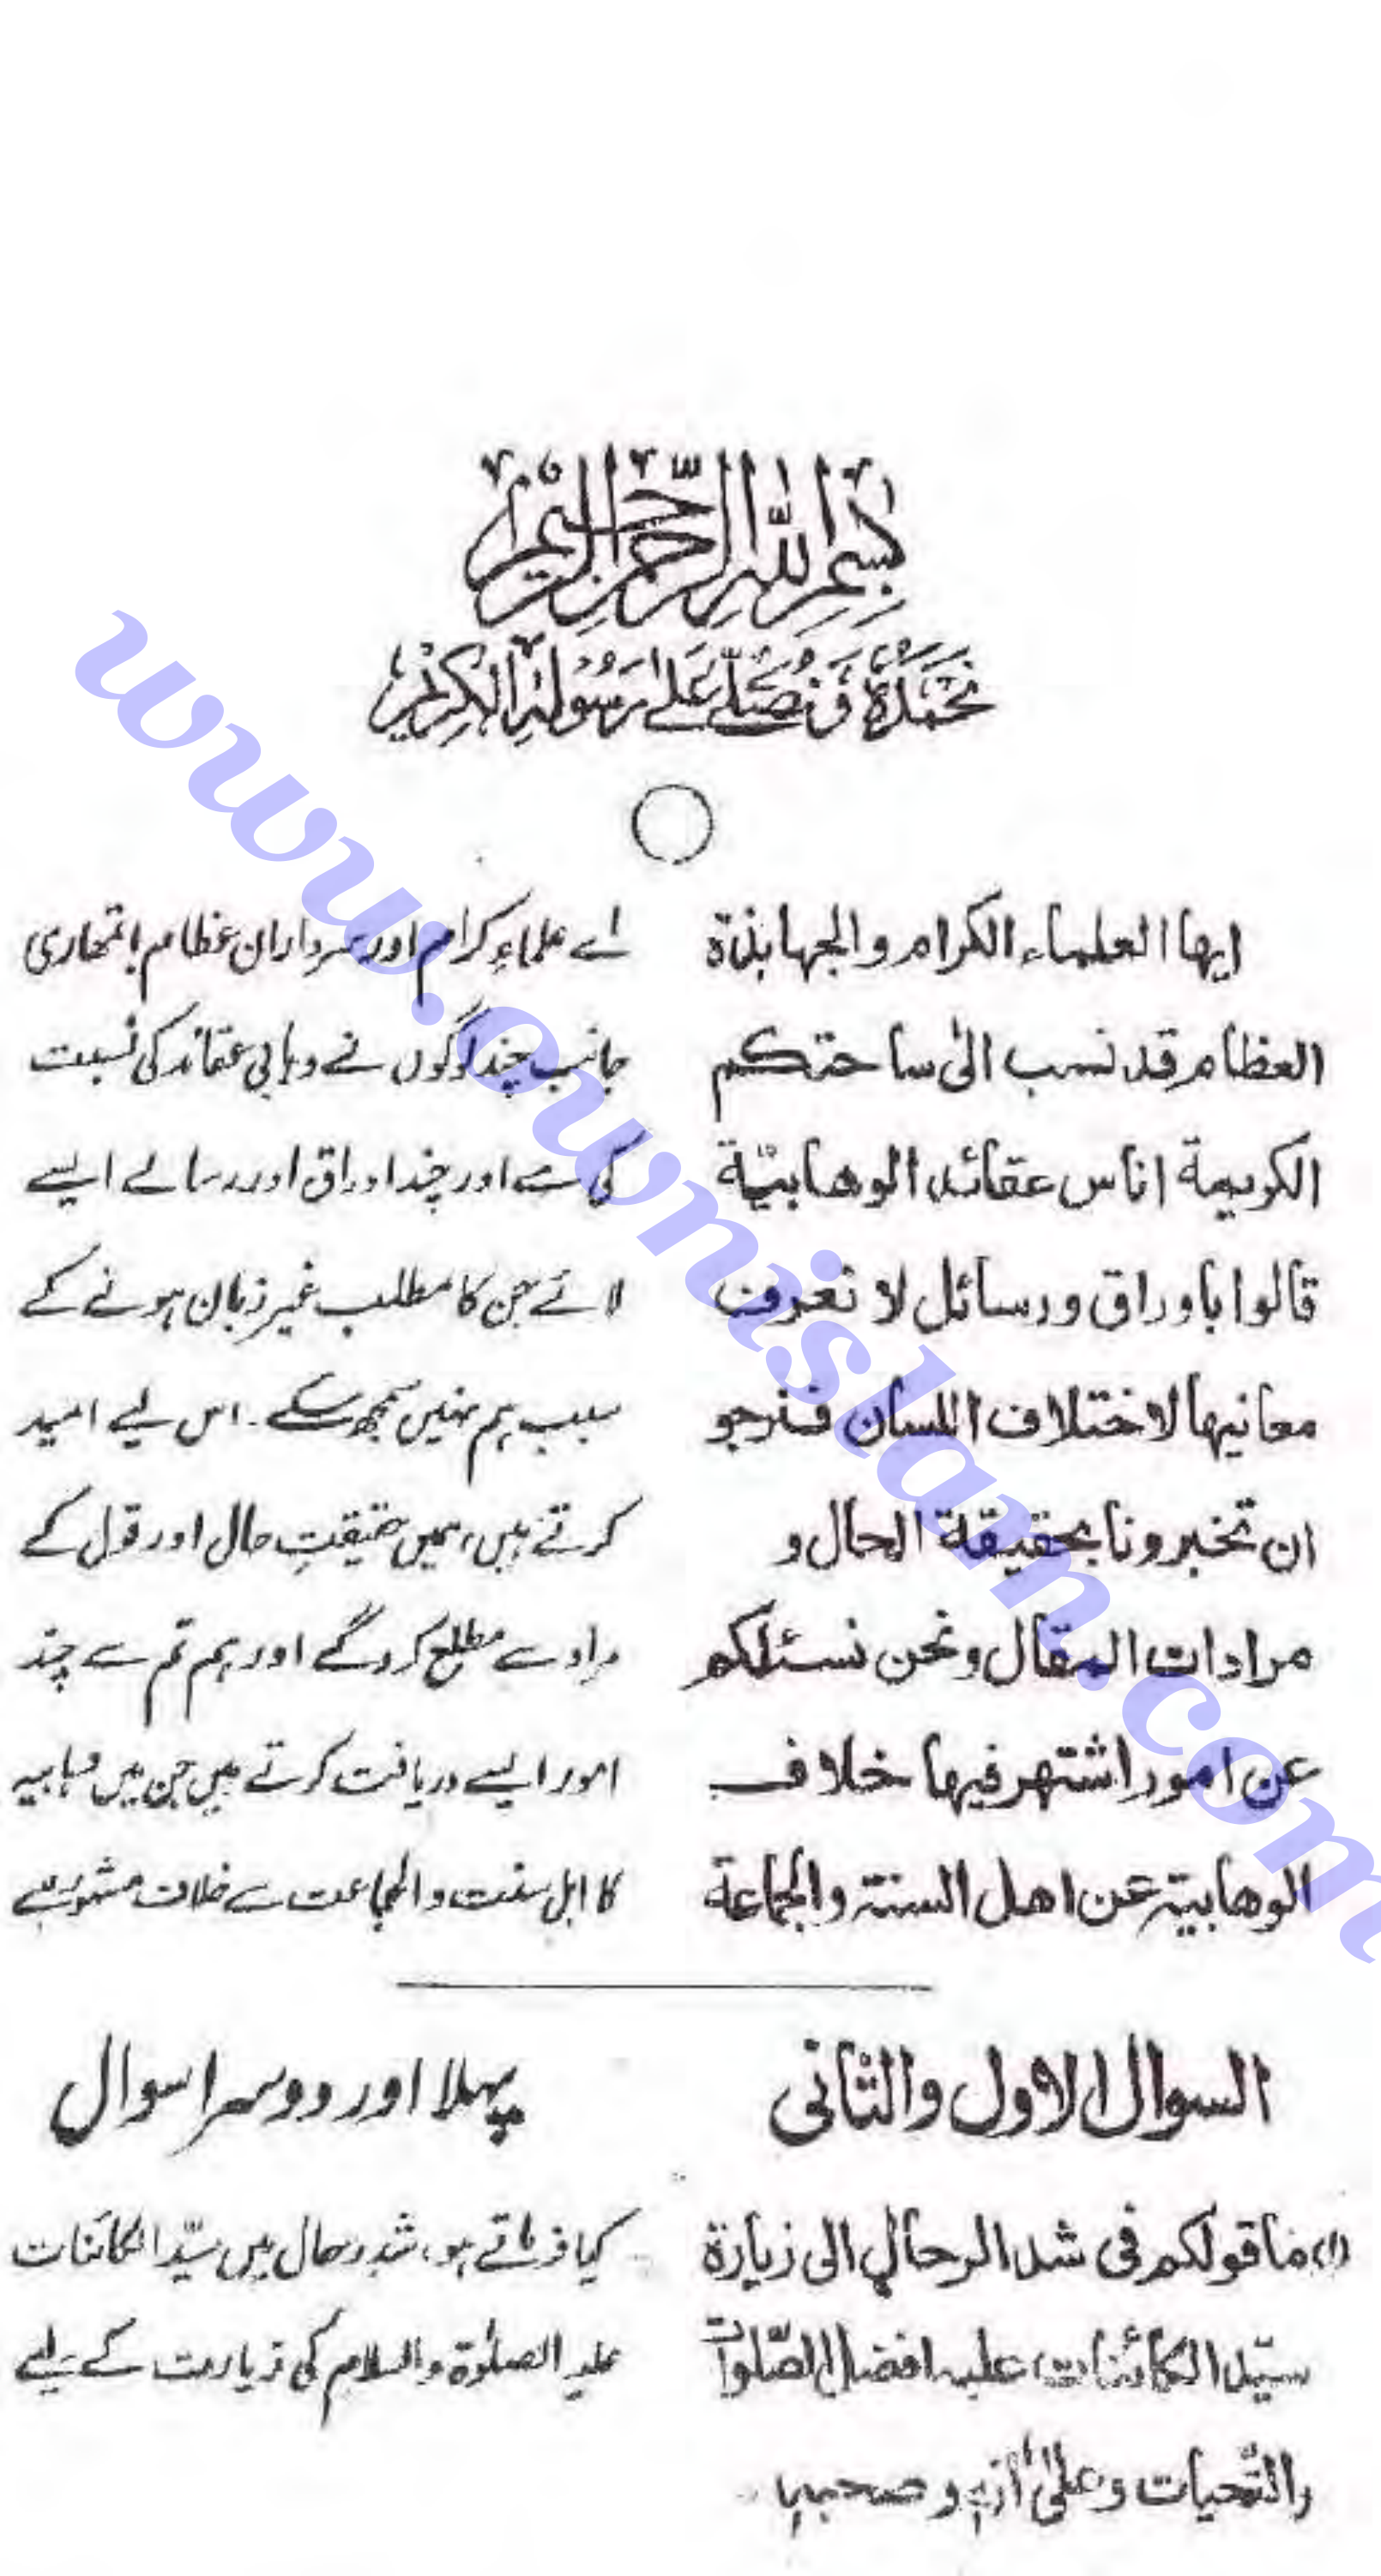 بِسْمِ اللّٰهِ الرَّحْمٰنِ الرَّحِيْمِ
نَحْمَدُهٗ وَنُصَلِّیْ عَلٰی رَسُوْلِهِ الْكَرِیْمِ
ايها العلماء الكرام والجهابذة
العظام قد نسب الىٰ ساحتكم
الكريمة اناس عقائد الوهابيّة
قالوا باوراق ورسائل لا نعرف
معانيها لاختلاف اللسان فنرجو
ان تخبرونا بحقيقة الحال و
مرادات المقال ونحن نسئلكم
عن امور اشتهر فيها خلاف
الوهابية عن اهل السنة والجماعة
اے علماءِ کرام اور سردارانِ عظام تمھاری
جانب چند لوگوں نے وہابی عقائد کی نسبت
کی ہے اور چند اوراق اور رسالے ایسے
لائے جن کا مطلب غیر زبان ہونے کے
سبب ہم نہیں سمجھ سکے۔ اس لیے امید
کرتے ہیں، ہمیں حقیقتِ حال اور قول کے
مراد سے مطلع کروگے اور ہم تم سے چند
امور ایسے دریافت کرتے ہیں جن میں وہابیہ
کا اہل سنت والجماعت سے خلاف مشہور ہے
السوال الاول والثانی
(۱) ما قولكم فی شد الرحال الی زيارة
سيّد الكائنات عليه افضل الصّلوات
والتّحيات وعلىٰ آله و صحبه
پہلا اور دوسرا سوال
کیا فرماتے ہو، شدِ رحال میں سیّد الکائنات
علیہ الصلوٰۃ والسلام کی زیارت کے لیے
www.ownislam.com